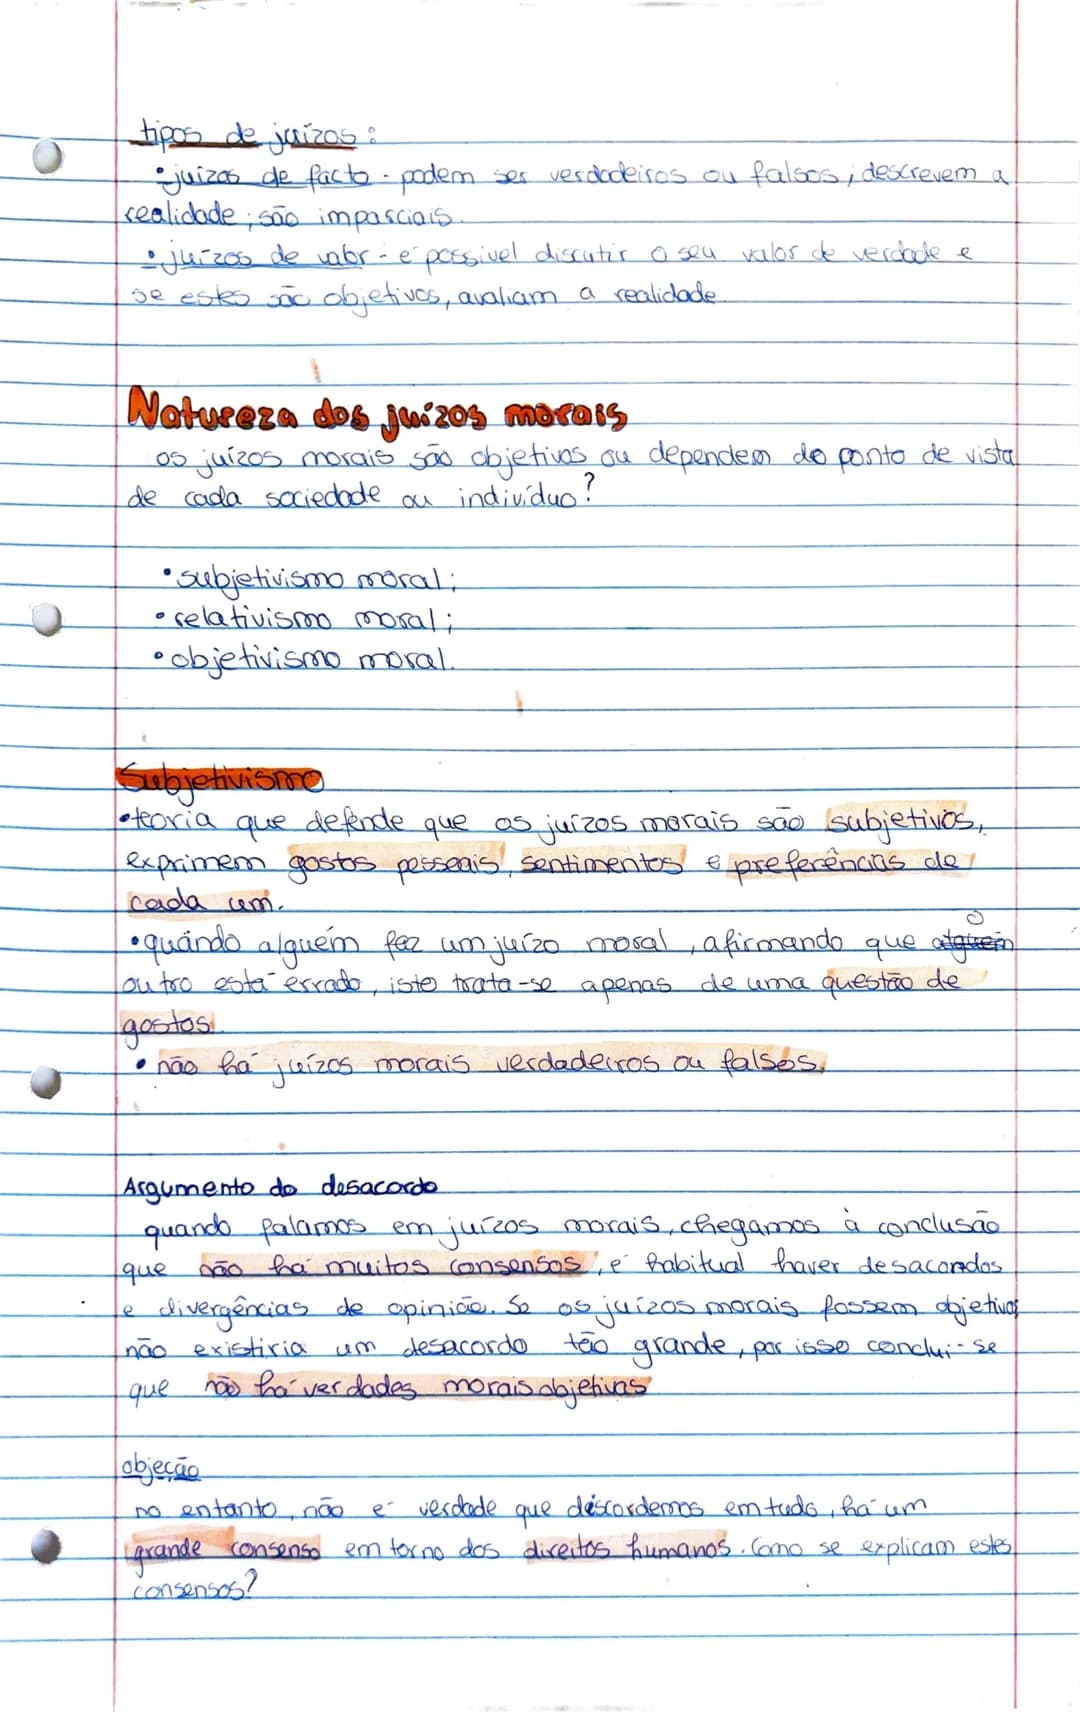 tipos de juízos:
• juízos de facto - podem ser verdadeiros ou falsos, descrevem a
realidade; são imparciais.
• juízos de valor - é possivel discutir o seu valor de verdade e
se estes são objetivos, avaliam a realidade
Natureza dos juízos morais
os juízos morais são objetivos ou dependem do ponto de vista
de cada sociedade ou indivíduo?
• subjetivismo moral;
• relativismo moral;
• objetivismo moral.
Subjetivismo
• teoria que defende que os juízos morais são subjetivos,
exprimem gostos pessoais, sentimentos e preferências de
cada um.
• quando alguém fez um juízo moral, afirmando que o alguém
outro está errado, isto trata-se apenas de uma questão de
gostos.
• não há juízos morais verdadeiros ou falsos.
Argumento do desacordo
quando falamos em juízos morais, chegamos à conclusão
que não há muitos consensos, é habitual haver desacordos
e divergências de opinião. Se os juízos morais fossem objetivos
não existiria um desacordo tão grande, por isso conclui-se
que não há verdades morais objetivas
objeção
no entanto, não é verdade que discordemos em tudo, há um
grande consenso em torno dos direitos humanos. Como se explicam estes
consensos?